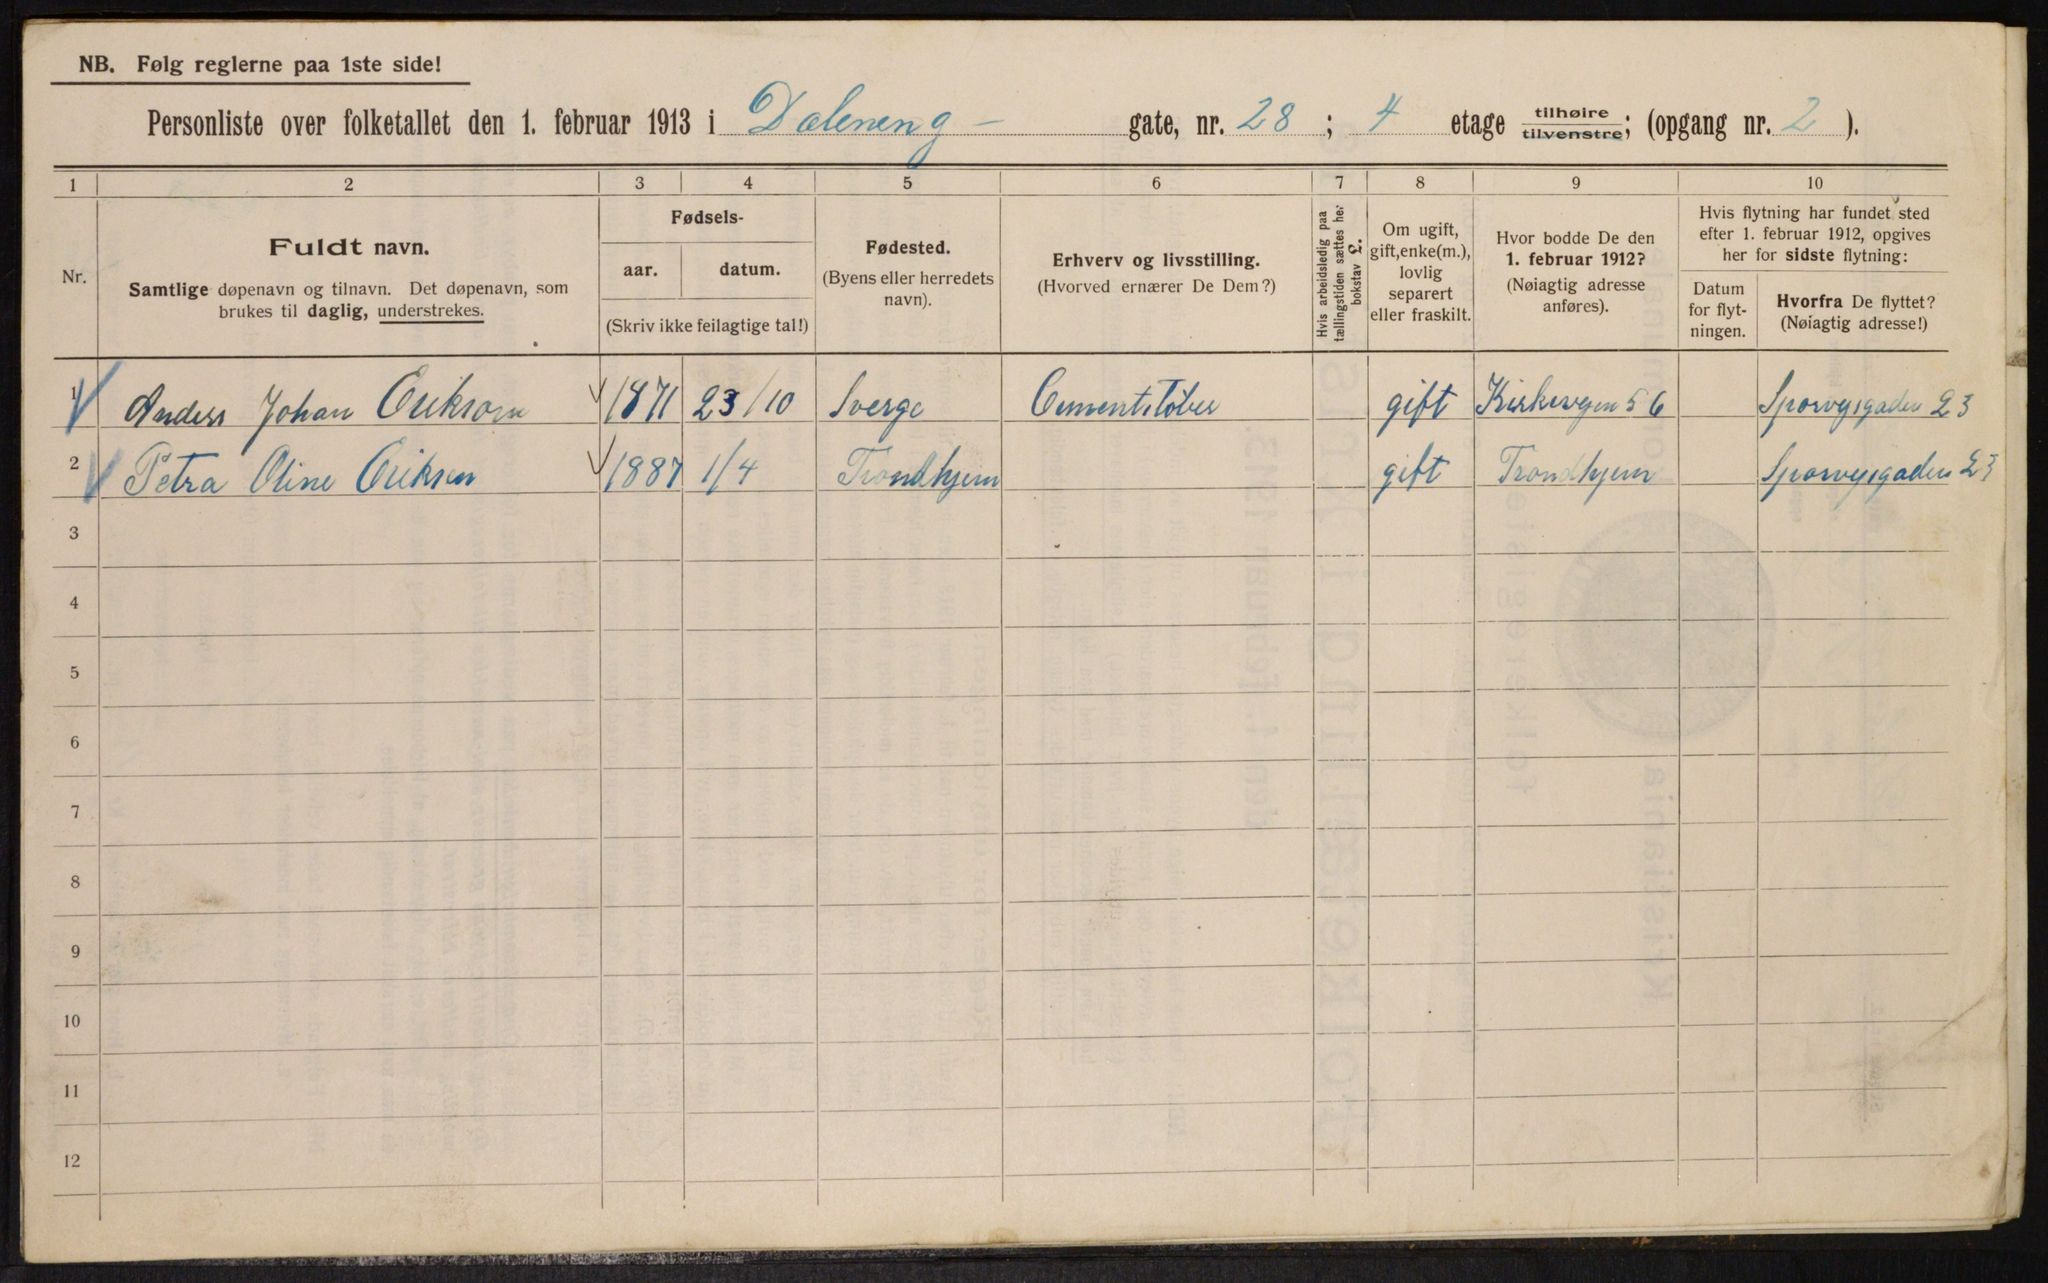 NB. Følg reglerne paa 1ste side!
Personliste over folketallet den 1. februar 1913 i Dæleneng- gate, nr. 28 ; 4 etage tilhøire tilvenstre; (opgang nr. 2 ).
1 2 3 4 5 6 7 8 9 10
Nr.
Fuldt navn.
Samtlige døpenavn og tilnavn. Det døpenavn, som
brukes til daglig, understrekes.
Fødsels-
aar. datum.
(Skriv ikke feilagtige tal!)
Fødested.
(Byens eller herredets
navn).
Erhverv og livsstilling.
(Hvorved ernærer De Dem?)
Hvis arbeidsledig paa
tællingstiden sættes her
bokstav L.
Om ugift,
gift, enke(m.),
lovlig
separert
eller fraskilt.
Hvor bodde De den
1. februar 1912?
(Nøiagtig adresse
anføres).
Hvis flytning har fundet sted
efter 1. februar 1912, opgives
her for sidste flytning:
Datum
for flyt-
ningen.
Hvorfra De flyttet?
(Nøiagtig adresse!)
1 Anders Johan Erikson 1871 23/10 Sverge Cementstøber gift Kirkevgen 56 Sporvejsgaden 23
2 Petra Oline Eriksen 1887 1/4 Trondhjem gift Trondhjem Sporvejsgaden 23
3
4
5
6
7
8
9
10
11
12